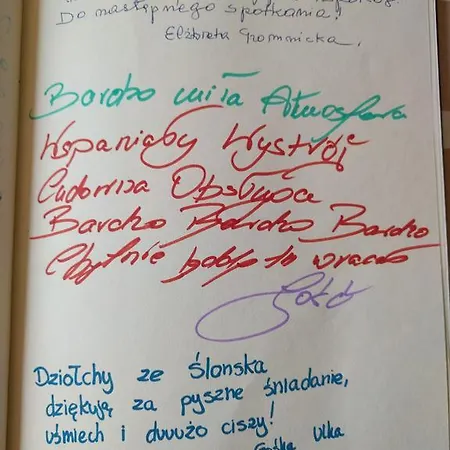 Do następnego spotkania!
Elżbieta
Bardzo miła Atmosfera
Wspaniały Wystrój
Cudowna Obsługa
Bardzo Bardzo Bardzo
Chętnie będę tu wracać
Gość
Dziołchy ze Ślonska
dziękują za pyszne śniadanie,
uśmiech i duuużo ciszy!
Ulka